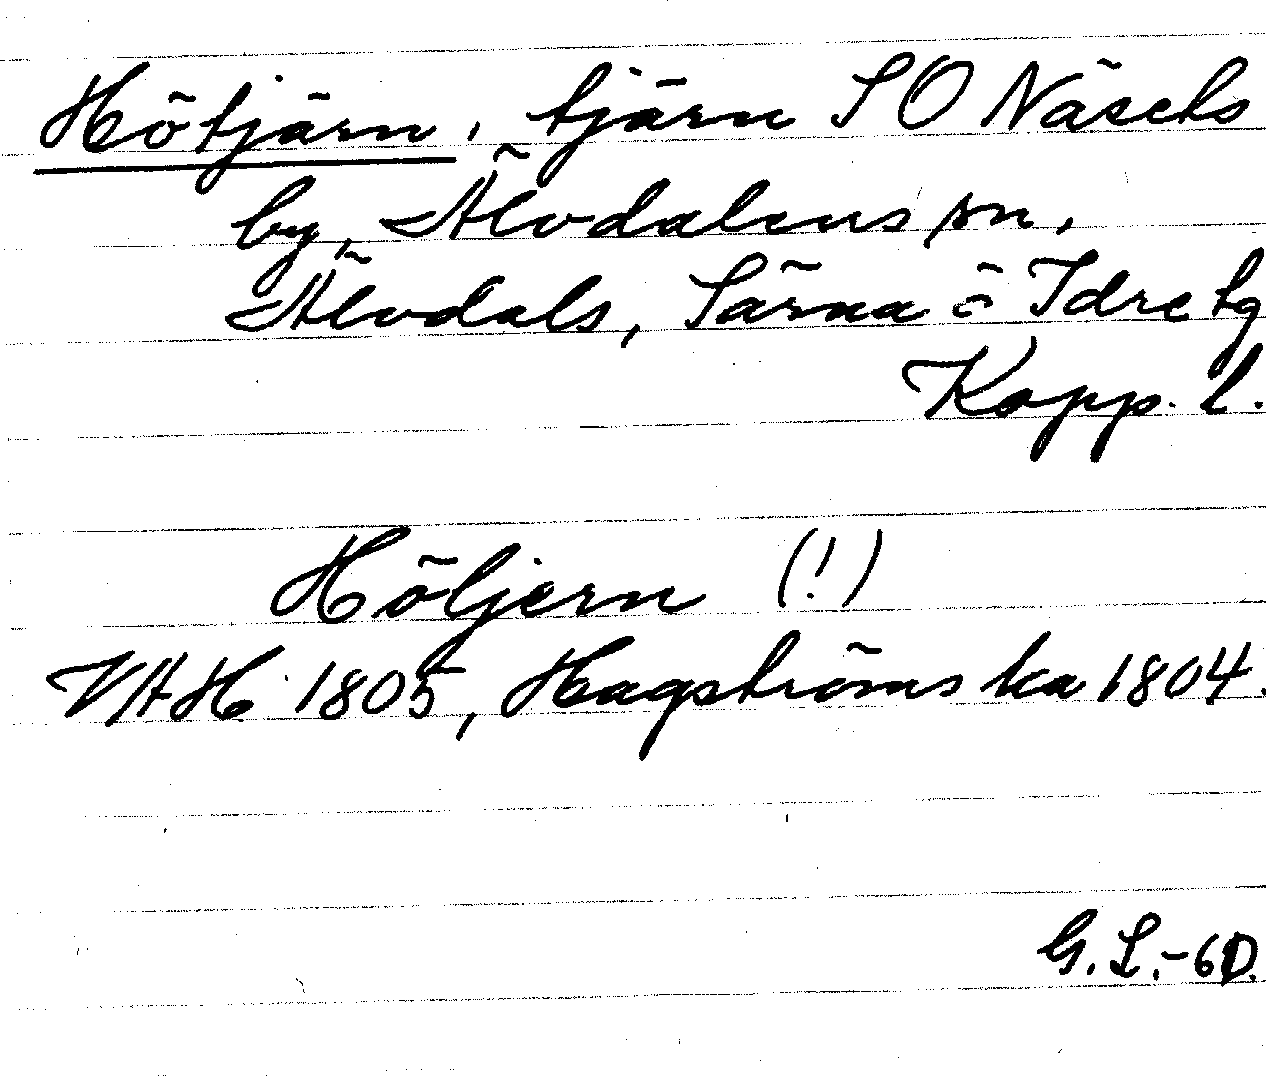 Hötjärn, tjärn SO Näsets
by, Älvdalens sn,
Älvdals, Särna o Idre tg
Kopp. l.
Höljern (!)
VAH 1805, Hagströms ka 1804.
G. L.-60.